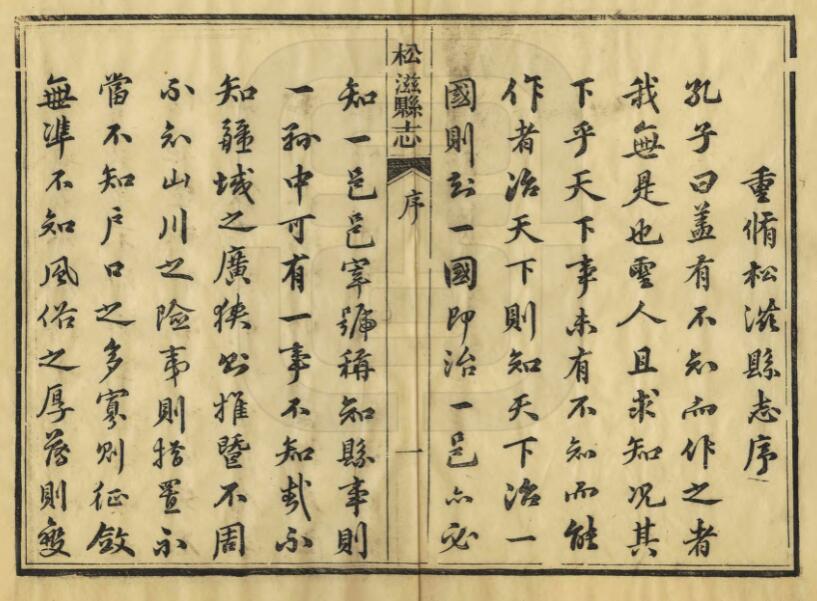 重脩松滋縣志序
孔子曰蓋有不知而作之者
我無是也聖人且求知况其
下乎天下事未有不知而能
作者治天下則知天下治一
國則知一國即治一邑亦必
松滋縣志 序 一
知一邑邑宰號稱知縣事則
一縣中可有一事不知哉不
知疆域之廣狹則推暨不周
不知山川之險夷則措置不
當不知户口之多寡則征斂
無準不知風俗之厚薄則變